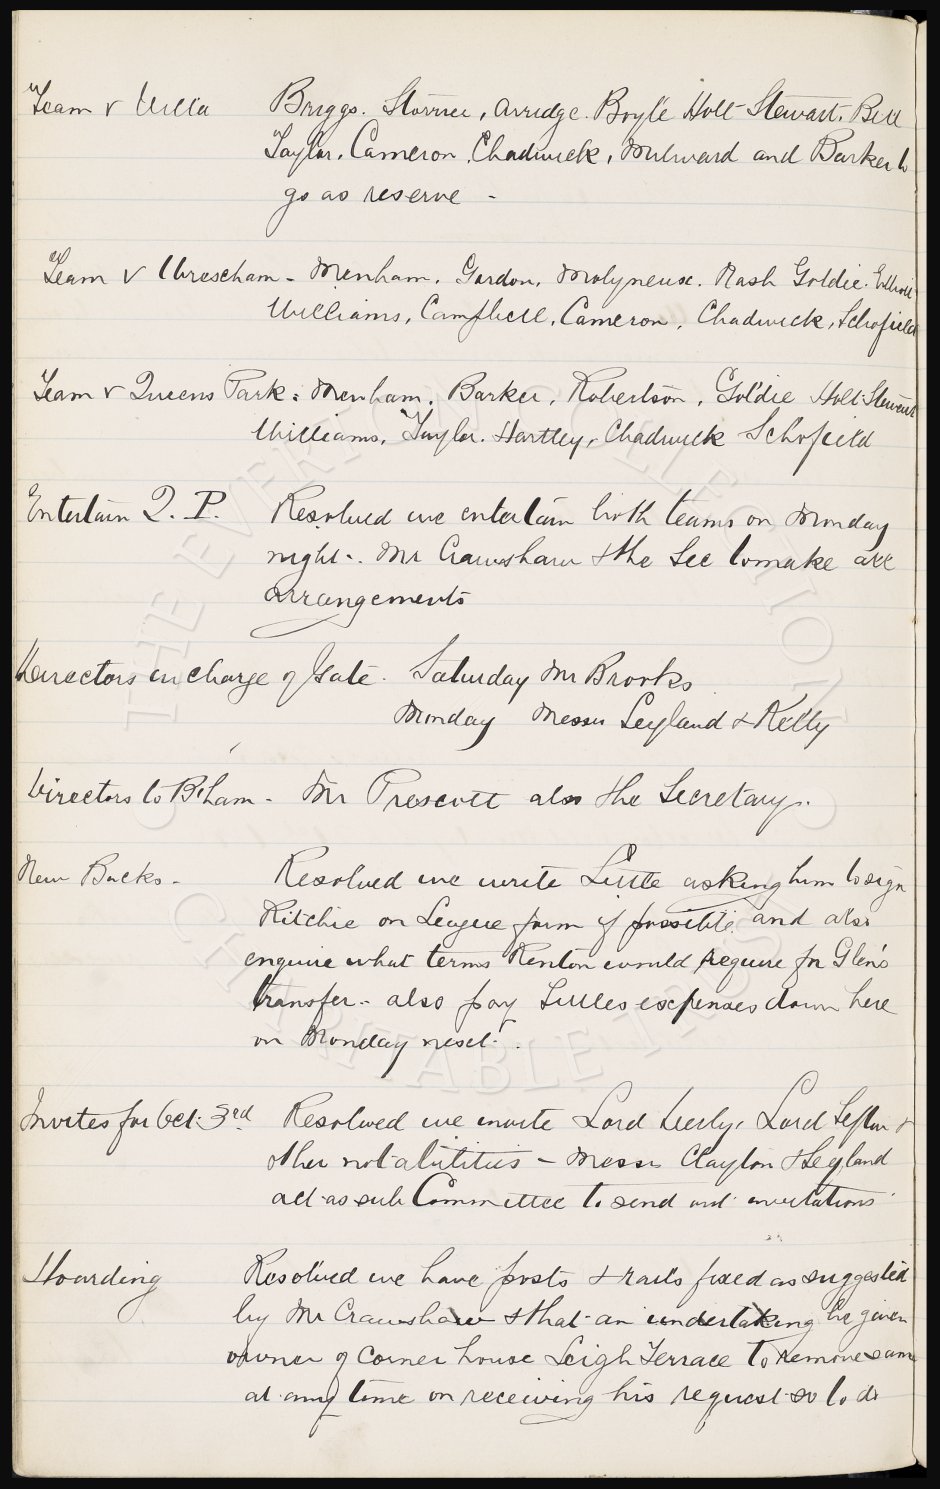 Team v Villa Briggs. Storrier, Arridge. Boyle Holt Stewart. Bell
Taylor. Cameron. Chadwick, Milward and Barker to
go as reserve -
Team v Wrexham - Menham. Gordon. Molyneux. Nash Goldie. Elliott
Williams, Campbell, Cameron, Chadwick, Schofield
Team v Queens Park: Menham. Barker, Robertson, Goldie Holt Stewart
Williams, Taylor. Hartley, Chadwick Schofield
Entertain Q. P. Resolved we entertain both teams on Monday
night-. Mr Crawshaw & the Sec to make all
arrangements
Directors in charge of Gate. Saturday Mr Brooks
Monday Messrs Leyland & Kelly
Directors to B'ham - Mr Prescott also the Secretary.
New Backs - Resolved we write Little asking him to sign
Ritchie on League form if possible and also
enquire what terms Renton would require for Glen's
transfer - also pay Littles expenses down here
on Monday next.
Invites for Oct. 3rd Resolved we invite Lord Derby, Lord Sefton &
other notabilities - Messrs Clayton & Leyland
act as sub Committee to send out invitations
Hoarding Resolved we have posts & rails fixed as suggested
by Mr Crawshaw & that an undertaking be given
owner of corner house Leigh Terrace to remove same
at any time on receiving his request so to do
THE EVERTON COLLECTION
CHARITABLE TRUST